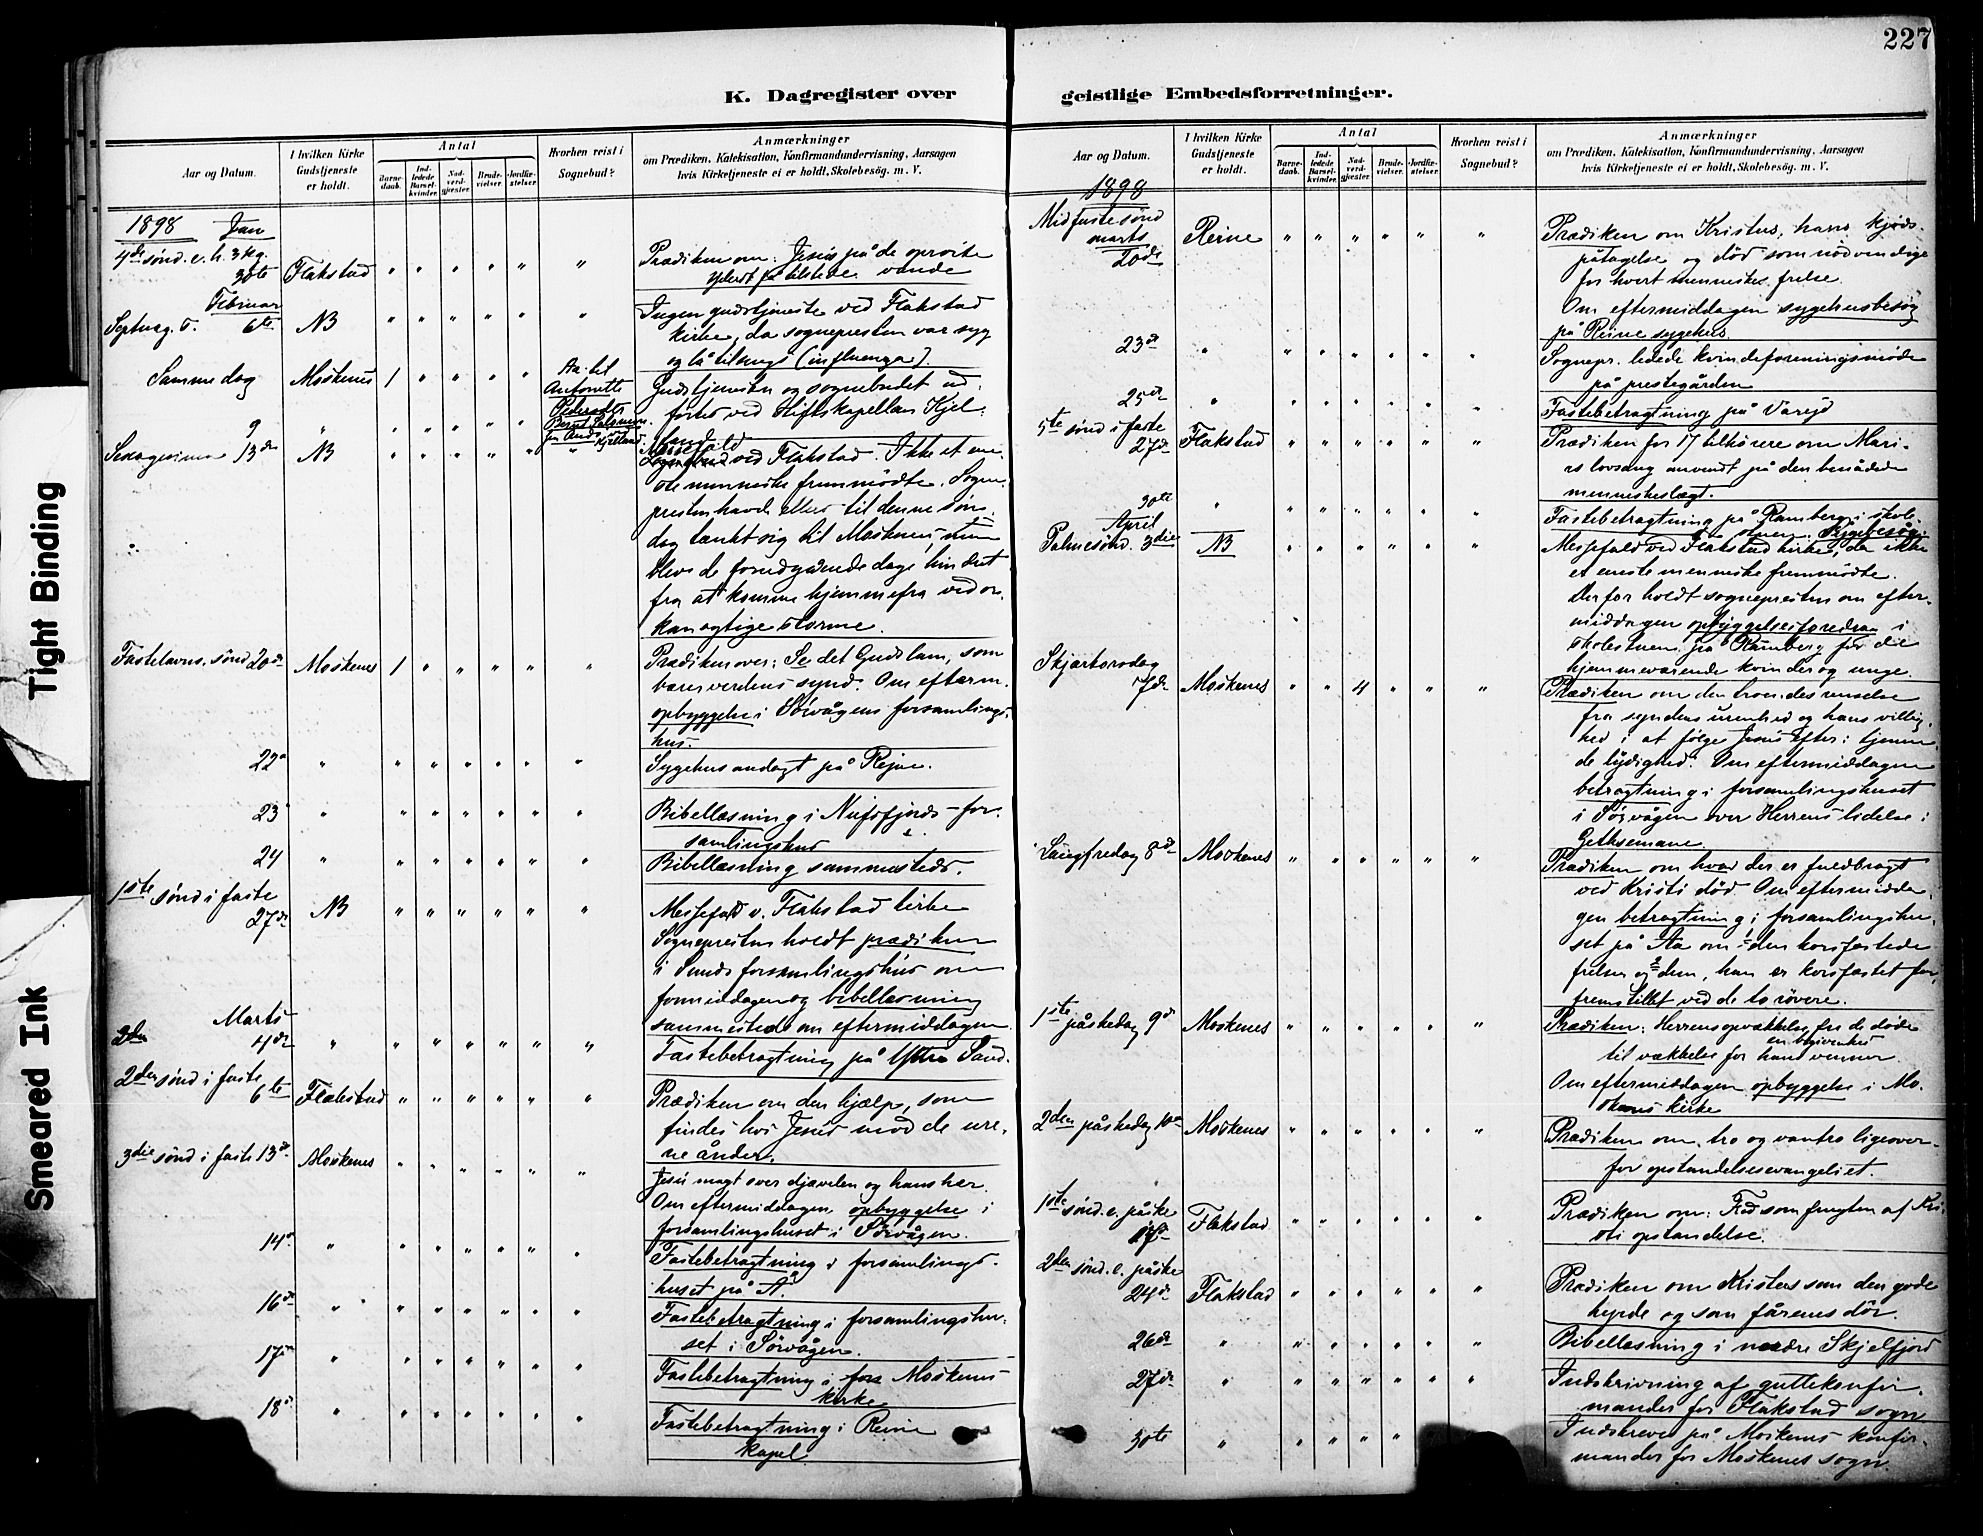 227
K. Dagregister over
Aar og Datum.
I hvilken Kirke Gudstjeneste er holdt.
Antal
Barnedaab.
Indledede Barselkvinder.
Nadverdgjester.
Brudevielser.
Jordfæstelser.
Hvorhen reist i Sognebud?
Anmærkninger
om Prædiken, Katekisation, Konfirmandundervisning, Aarsagen
hvis Kirketjeneste ei er holdt, Skolebesøg. m. V.
1898 Jan
4de sønd. e. h. 3 kg.
30te Flakstad " " " " " " Prædiken om: Jesus på de oprørte
vande
Februar
Septuag. s. 6te NB " " " " " " Ingen gudstjeneste ved Flakstad
kirke, da sognepresten var syg
og lå tilsengs (influenza).
Samme dag Moskenes 1 " " " " Aa. til
Antonette
Pedersdtr.
Gudstjenesten og sognebudet ud-
førtes ved stiftskapellan Kjel-
land
9 " " " " " "
Sexagesima 13de NB " " " " " " Messefald
ved Flakstad. Ikke et ene-
ste menneske fremmødte. Sogne-
presten havde ellers til denne søn-
dag tænkt sig til Moskenes, men
blev de foregående dage hindret
fra at komme hjemmefra ved or-
kanagtige storme.
Fastelavns. sønd 20de Moskenes 1 " " " " " Prædiken over: Se det Guds lam, som
bærer verdens synd. Om efterm.
opbyggelse i Sørvågens forsamlings-
hus.
22de " " " " " " " Sygehusandagt på Rejne.
23de " " " " " " " Bibellæsning i Nufsfjords for-
samlingshus
24 " " " " " " " Bibellæsning sammesteds.
1ste sønd i faste
27de NB " " " " " " Messefald v. Flakstad kirke
Sognepresten holdt prædiken
i Sunds forsamlingshus om
formiddagen og bibellæsning
sammesteds om eftermiddagen.
Marts
4de " " " " " " " Fastebetragtning på Yttre Sand.
2den sønd i faste
6te Flakstad " " " " " " Prædiken om den hjælp, som
findes hos Jesus mod de ure-
ne ånder.
3die sønd i faste 13de Moskenes " " " " " " Jesu magt over djævelen og hans hær.
Om eftermiddagen opbyggelse i
forsamlingshuset i Sørvågen.
14de " " " " " " " Fastebetragtning i forsamlings-
huset på Å.
16de " " " " " " " Fastebetragtning i forsamlingshu-
set i Sørvågen.
17de " " " " " " " Fastebetragtning i Moskenes
kirke
18de " " " " " " " Fastebetragtning i Reine
kapel
geistlige Embedsforretninger.
Aar og Datum.
I hvilken Kirke Gudstjeneste er holdt.
Antal
Barnedaab.
Indledede Barselkvinder.
Nadverdgjester.
Brudevielser.
Jordfæstelser.
Hvorhen reist i Sognebud?
Anmærkninger
om Prædiken, Katekisation, Konfirmandundervisning, Aarsagen
hvis Kirketjeneste ei er holdt, Skolebesøg. m. V.
1898
Midfastesønd
marts
20de Reine " " " " " " Prædiken om Kristus, hans kjøds-
påtagelse og død som nødvendige
for hvert menneskes frelse.
Om eftermiddagen sygehusbesøg
på Reine sygehus.
23de " " " " " " " Sognepr. ledede kvindeforeningsmøde
på prestegården
25de " " " " " " " Fastebetragtning på Vareid
5te sønd i faste
27de Flakstad " " " " " " Prædiken for 17 tilhørere om Mari-
as lovsang anvendt på den benådede
menneskeslægt.
30te " " " " " " " Fastebetragtning på Ramberg i skole-
stuen. Sygebesøg.
April
Palmesønd. 3die NB " " " " " " Messefald ved Flakstad kirke, da ikke
et eneste menneske fremmødte.
Derfor holdt sognepresten om efter-
middagen opbyggelsesforedrag i
skolestuen på Ramberg for de
hjemmeværende kvinder og unge.
Skjærtorsdag
7de Moskenes " " 4 " " " Prædiken om den troendes renselse
fra syndens urenhed og hans villig-
hed i at følge Jesus efter i tjenen-
de lydighed. Om eftermiddagen
betragtning i forsamlingshuset
i Sørvågen over Herrens lidelse i
Gethsemane.
Langfredag 8de Moskenes " " " " " " Prædiken om hvad der er fuldbragt
ved Kristi død. Om eftermidda-
gen betragtning i forsamlingshu-
set på Aa om den korsfæstede
frelser og dem, han er korsfæstet for,
fremstillet ved de to røvere.
1ste påskedag 9de Moskenes " " " " " " Prædiken: Herrens opvækkelse fra de døde
en begivenhed
til vækkelse for hans venner.
Om eftermiddagen opbyggelse i Mo-
skenes kirke
2den påskedag 10de Moskenes " " " " " " Prædiken om tro og vantro ligeover-
for opstandelsesevangeliet.
1ste sønd. e. påske
17de Flakstad " " " " " " Prædiken om: Fred som frugten af Kri-
sti opstandelse.
2den sønd. e. påske
24de Flakstad " " " " " " Prædiken om Kristus som den gode
hyrde og som fårenes dør.
26de " " " " " " " Bibellæsning i nedre Skjelfjord
27de " " " " " " " Indskrivning af guttekonfir-
mander for Flakstad sogn
30te " " " " " " Indskrevet på Moskenes konfir-
mander for Moskenes sogn.
Tight Binding
Smeared Ink